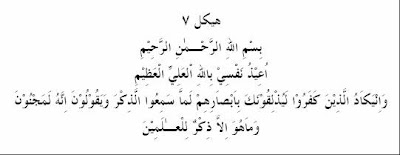 هيكل ٧
بِسْمِ اللهِ الرَّحْـــمٰنِ الرَّحِيْمِ
اُعِيْذُ نَفْسِيْ بِاللهِ الْعَلِيِّ الْعَظِيْمِ
وَاِنْيَكَادُ الَّذِيْنَ كَفَرُوْا لَيُذْلِقُوْنَكَ بِاَبْصَارِهِمْ لَمَّا سَمِعُوا الذِّكْرَ وَيَقُوْلُوْنَ اِنَّهُ لَمَجْنُوْنَ
وَمَاهُوَ اِلاَّ ذِكْرٌ لِلْعَـٰـلَمِيْنَ